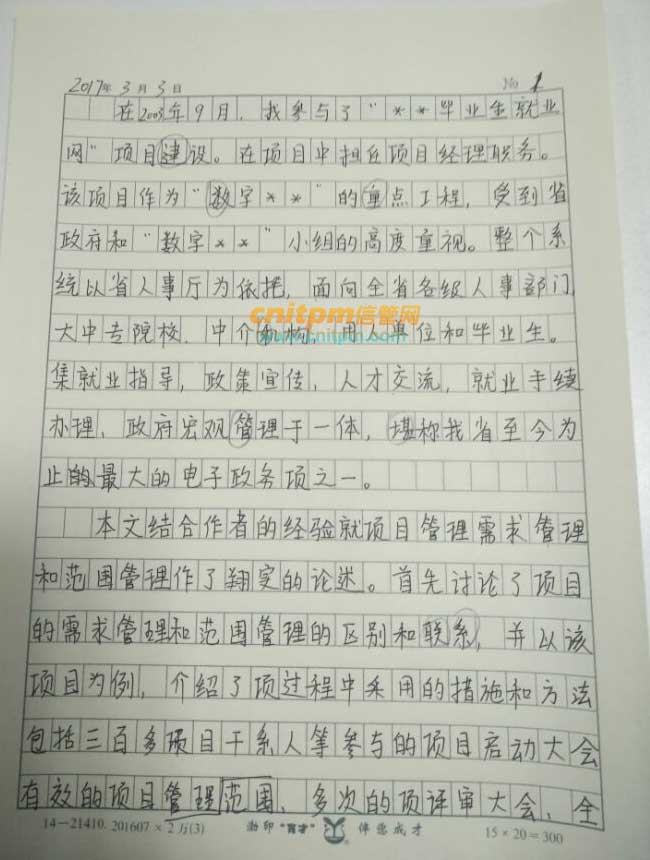 2017年 3月 3日 No 1
在2003年9月，我参与了“**毕业生就业
网”项目建设。在项目中担任项目经理职务。
该项目作为“数字**”的重点工程，受到省
政府和“数字**”小组的高度重视。整个系
统以省人事厅为依托，面向全省各级人事部门
大中专院校、中介机构、用人单位和毕业生。
cnitpm信管网
www.cnitpm.com
集就业指导，政策宣传，人才交流，就业手续
办理、政府宏观管理于一体，堪称我省至今为
止的最大的电子政务项之一。
本文结合作者的经验就项目管理需求管理
和范围管理作了翔实的论述。首先讨论了项目
的需求管理和范围管理的区别和联系，并以该
项目为例，介绍了项过程中采用的措施和方法
包括三百多项目干系人等参与的项目启动大会
有效的项目管理范围、多次的项评审大会、全
14—21410.201607×2万(3) 渤印“育才” 伴您成才 15×20=300